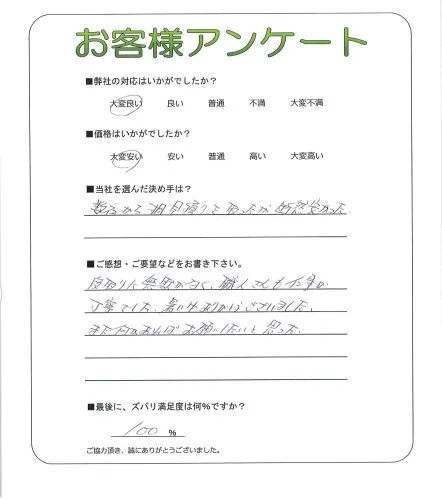 お客様アンケート
■弊社の対応はいかがでしたか？
大変良い 良い 普通 不満 大変不満
■価格はいかがでしたか？
大変安い 安い 普通 高い 大変高い
■当社を選んだ決め手は？
数社から相見積りを取ったが断然安かった。
■ご感想・ご要望などをお書き下さい。
段取りに無駄がなく、職人さんも仕事が
丁寧でした。暑い中ありがとうございました。
また何かあればお願いしたいと思った。
■最後に、ズバリ満足度は何％ですか？
100 ％
ご協力頂き、誠にありがとうございました。